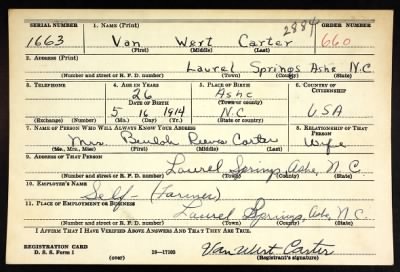 SERIAL NUMBER 1. NAME (Print) 2884 ORDER NUMBER
1663 Van Wert Carter 660
(First) (Middle) (Last)
2. ADDRESS (Print)
Laurel Springs Ashe N.C
(Number and street or R. F. D. number) (Town) (County) (State)
3. TELEPHONE 4. AGE IN YEARS 5. PLACE OF BIRTH 6. COUNTRY OF CITIZENSHIP
26 Ashe
DATE OF BIRTH (Town or county)
5 16 1914 N.C USA
(Exchange) (Number) (Mo.) (Day) (Yr.) (State or country)
7. NAME OF PERSON WHO WILL ALWAYS KNOW YOUR ADDRESS 8. RELATIONSHIP OF THAT PERSON
Mrs. Beulah Reeves Carter Wife
(Mr., Mrs., Miss) (First) (Middle) (Last)
9. ADDRESS OF THAT PERSON
Laurel Springs, Ashe, N.C.
(Number and street or R. F. D. number) (Town) (County) (State)
10. EMPLOYER'S NAME
Self - (Farmer)
11. PLACE OF EMPLOYMENT OR BUSINESS
Laurel Springs, Ashe, N.C.
(Number and street or R. F. D. number) (Town) (County) (State)
I AFFIRM THAT I HAVE VERIFIED ABOVE ANSWERS AND THAT THEY ARE TRUE.
REGISTRATION CARD
D. S. S. Form 1 16-17105 Van Wert Carter
(over) (Registrant's signature)